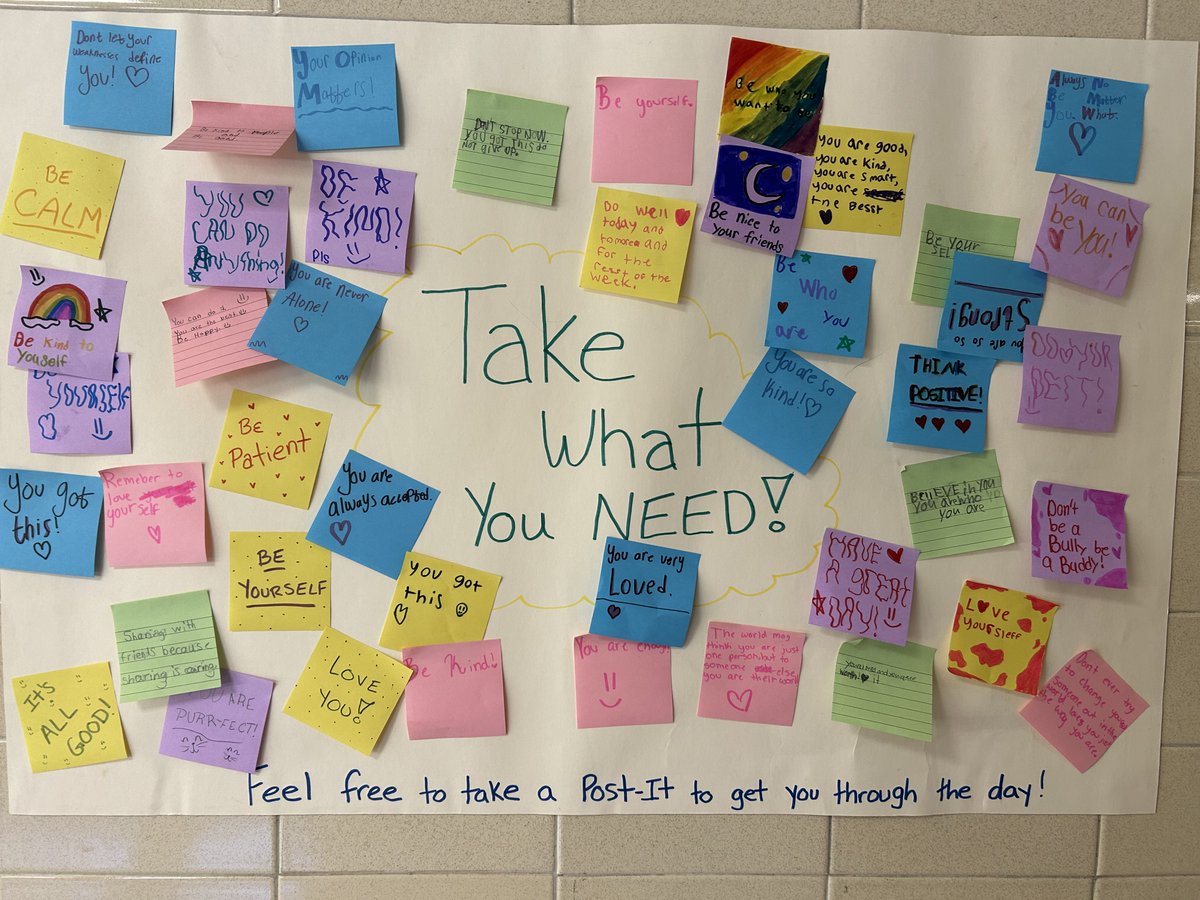 Dont let your
weaknesses define
you! ♡
Your Opinion
Matters!
Be kind to people
DON'T STOP NOW.
YOU GOT THIS do
NOT GIVE UP.
Be yourself.
Be who you
want to be
you are good,
you are kind,
you are smart,
you are
the besst
Always No
Be Matter
You. What.
BE
CALM
YOU
CAN DO
Anything!
BE
KIND!
Pls
Do well
today and
tomorrow and
for the
rest of the
week.
Be nice to
your friends
Be your
SELF
You can
be you!
Be kind to
yourself
You can do it
You are the best
Be Happy
You are never
Alone!
Take
What
You NEED!
Be
Who
you
are
you are so so
Strong!
DO YOUR
BEST!
DO
YOURSELF
BE
Patient
You are so
kind!
THINK
POSITIVE!
You got
this!
Remeber to
love
yourself
You are
always accepted.
BeliEVE in YOU
YOU are who
you are
Don't
be a
Bully be
a Buddy!
BE
YOURSELF
You got
this
You are very
Loved.
HAVE
A GREAT
DAY!
Love
yourself
Sharing with
friends because
sharing is caring.
It's
ALL
GOOD!
YOU ARE
PURR-FECT!
LOVE
YOU!
Be Kind!
You are enough
The world may
think you are just
one person, but to
someone else,
you are their world
worth it
Don't ever try
to change yourself
someone out in the
world loves you just
the way you are.
Feel free to take a Post-It to get you through the day!